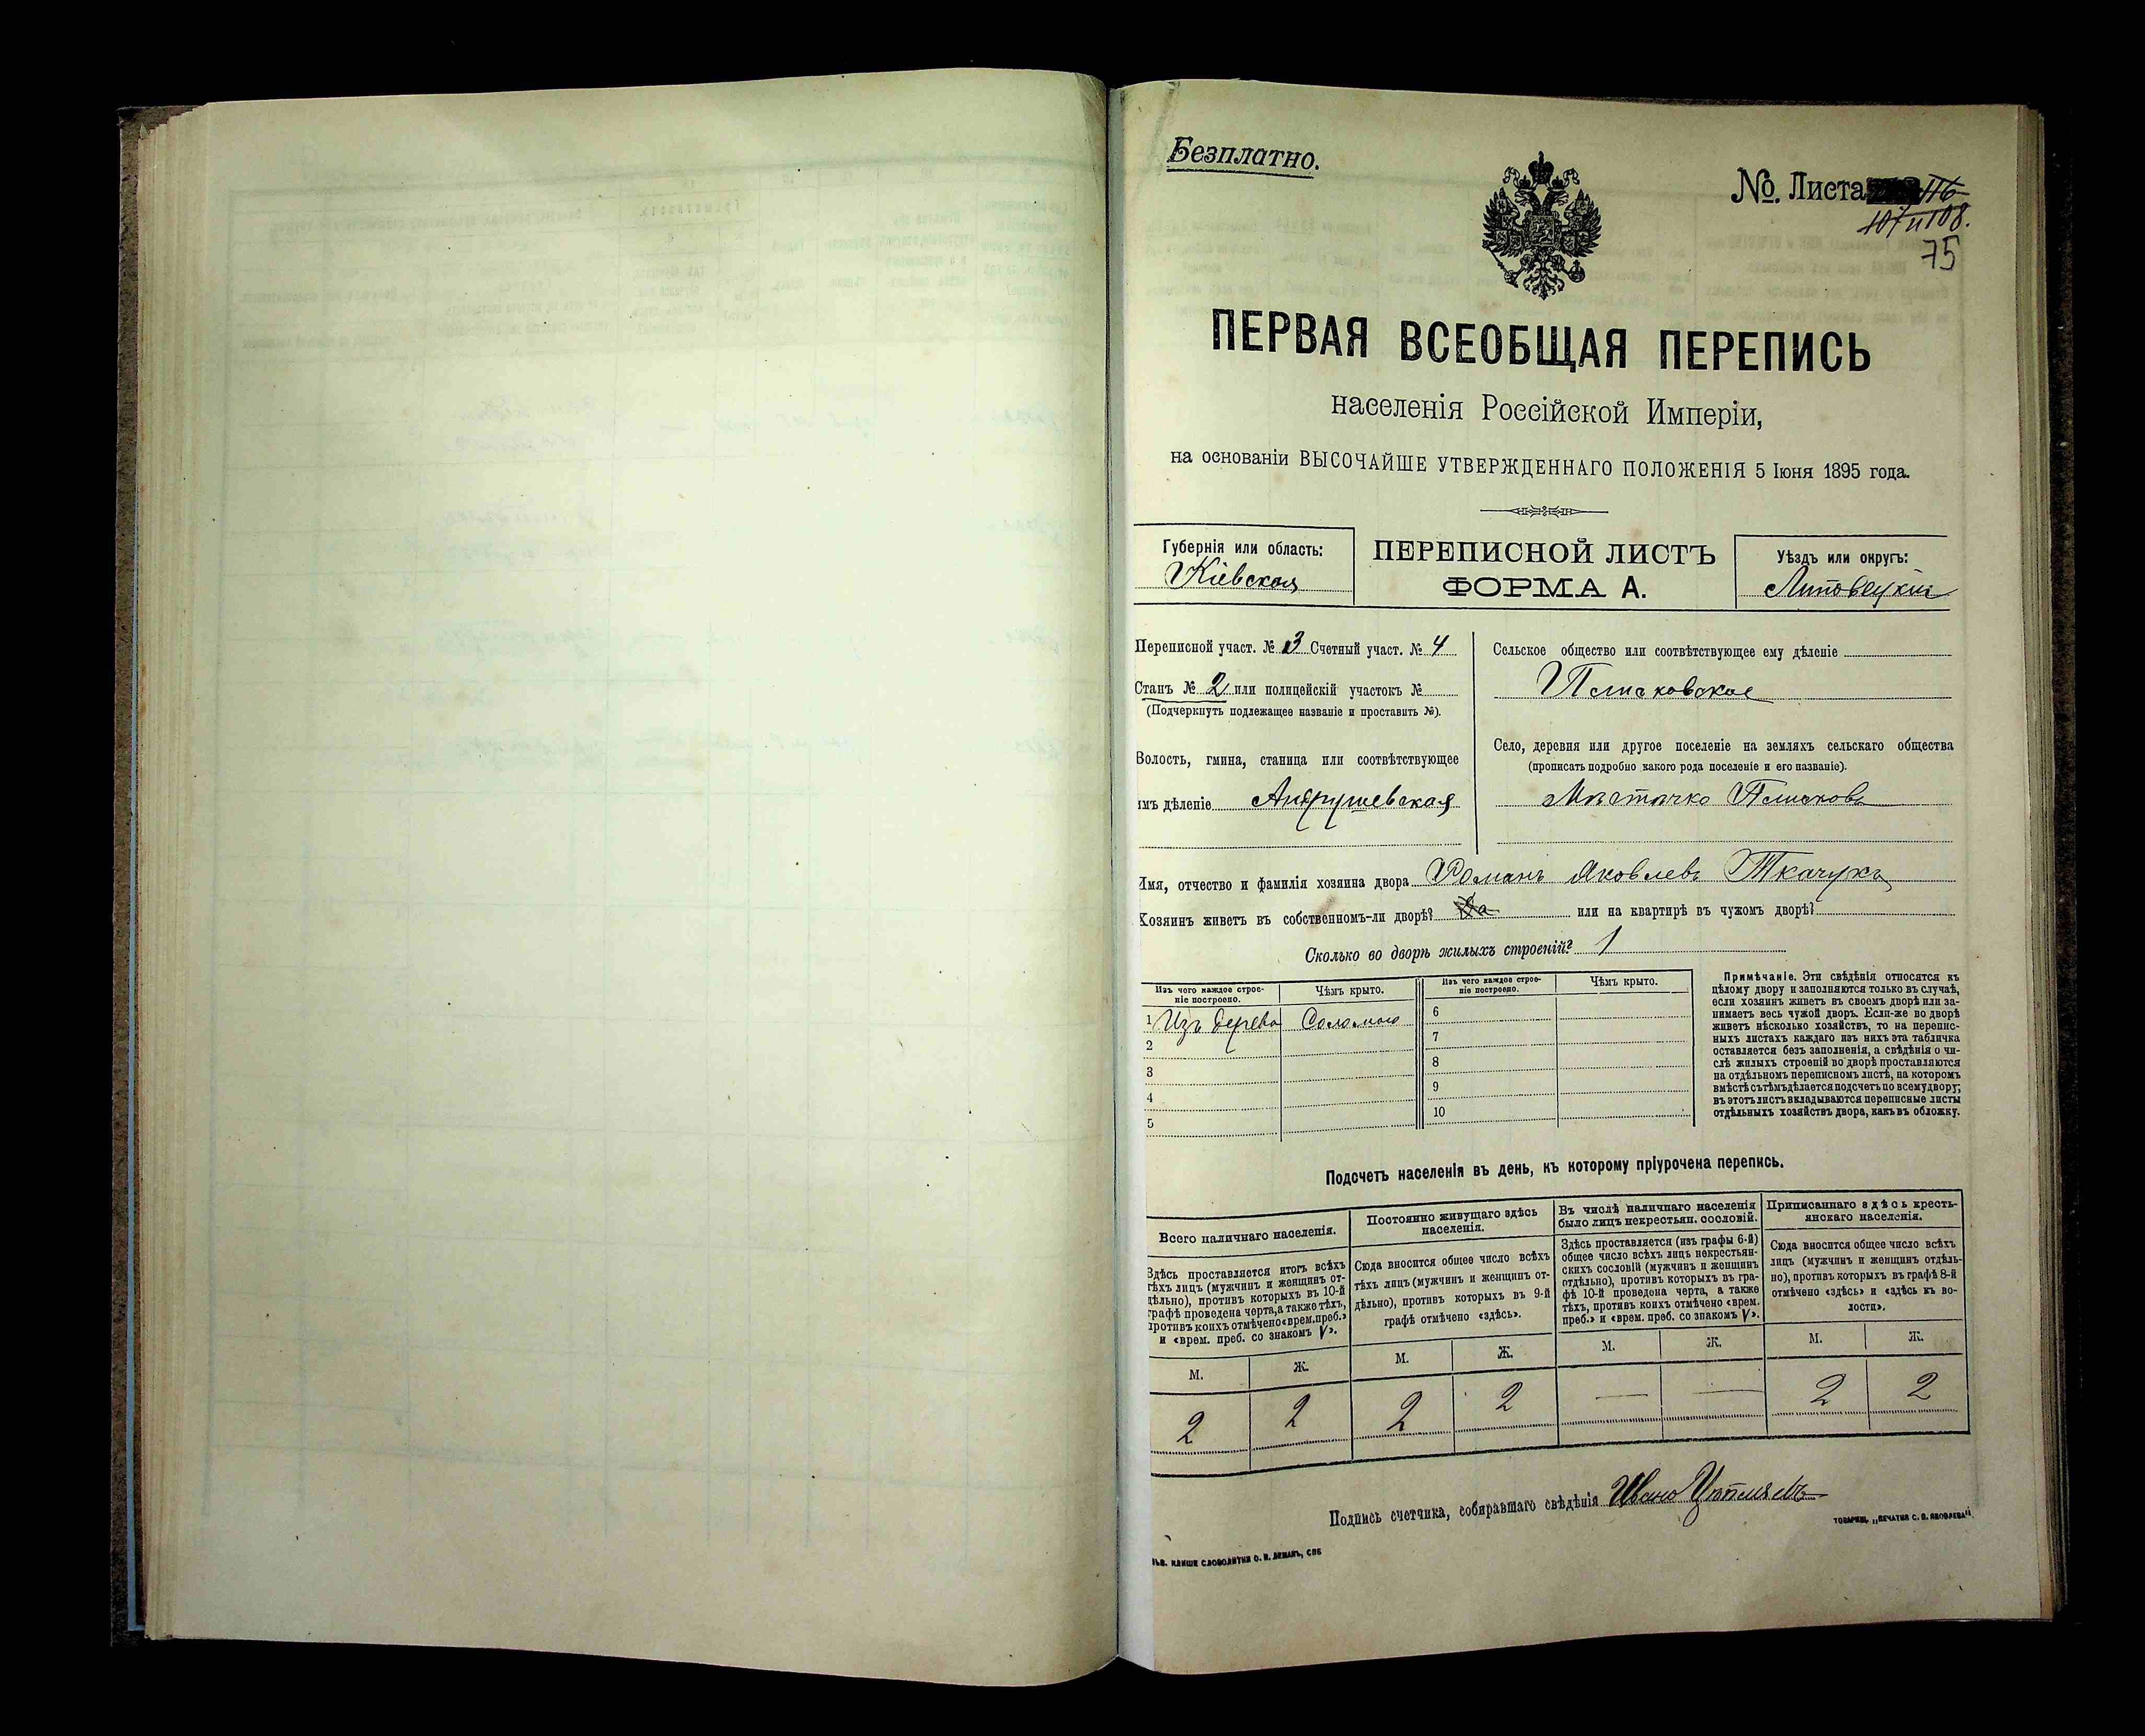 Безплатно.
№. Листа 116
107 и 108.
75
ПЕРВАЯ ВСЕОБЩАЯ ПЕРЕПИСЬ
населенія Россійской Имперіи,
на основаніи ВЫСОЧАЙШЕ УТВЕРЖДЕННАГО ПОЛОЖЕНІЯ 5 Іюня 1895 года.
Губернія или область:
Кіевская
ПЕРЕПИСНОЙ ЛИСТЪ
ФОРМА А.
Уѣздъ или округъ:
Липовецкій
Переписной участ. № 3 Счетный участ. № 4
Станъ № 2 или полицейскій участокъ №
(Подчеркнуть подлежащее названіе и проставить №).
Волость, гмина, станица или соотвѣтствующее
имъ дѣленіе Андрушевская
Сельское общество или соотвѣтствующее ему дѣленіе
Плисковское
Село, деревня или другое поселеніе на земляхъ сельскаго общества
(прописать подробно какого рода поселеніе и его названіе).
Мѣстечко Плисковъ
Имя, отчество и фамилія хозяина двора Романъ Яковлевъ Ткачукъ
Хозяинъ живетъ въ собственномъ-ли дворѣ? Да или на квартирѣ въ чужомъ дворѣ?
Сколько во дворѣ жилыхъ строеній? 1
Изъ чего каждое строе-
ніе построено.
Чѣмъ крыто.
1 Изъ дерева Соломою
2
3
4
5
Изъ чего каждое строе-
ніе построено.
Чѣмъ крыто.
6
7
8
9
10
Примѣчаніе. Эти свѣдѣнія относятся къ
цѣлому двору и заполняются только въ случаѣ,
если хозяинъ живетъ въ своемъ дворѣ или за-
нимаетъ весь чужой дворъ. Если-же во дворѣ
живетъ нѣсколько хозяйствъ, то на перепис-
ныхъ листахъ каждаго изъ нихъ эта табличка
оставляется безъ заполненія, а свѣдѣнія о чи-
слѣ жилыхъ строеній во дворѣ проставляются
на отдѣльномъ переписномъ листѣ, на которомъ
вмѣстѣ съ тѣмъ дѣлается подсчетъ по всему двору;
въ этотъ листъ вкладываются переписные листы
отдѣльныхъ хозяйствъ двора, какъ въ обложку.
Подсчетъ населенія въ день, къ которому пріурочена перепись.
Всего наличнаго населенія.
Здѣсь проставляется итогъ всѣхъ
тѣхъ лицъ (мужчинъ и женщинъ от-
дѣльно), противъ которыхъ въ 10-й
графѣ проведена черта, а также тѣхъ,
противъ коихъ отмѣчено «врем. преб.»
и «врем. преб. со знакомъ V».
М. Ж.
2 2
Постоянно живущаго здѣсь
населенія.
Сюда вносится общее число всѣхъ
тѣхъ лицъ (мужчинъ и женщинъ от-
дѣльно), противъ которыхъ въ 9-й
графѣ отмѣчено «здѣсь».
М. Ж.
2 2
Въ числѣ наличнаго населенія
было лицъ некрестьян. сословій.
Здѣсь проставляется (изъ графы 6-й)
общее число всѣхъ лицъ некрестьян-
скихъ сословій (мужчинъ и женщинъ
отдѣльно), противъ которыхъ въ гра-
фѣ 10-й проведена черта, а также
тѣхъ, противъ коихъ отмѣчено «врем.
преб.» и «врем. преб. со знакомъ V».
М. Ж.
— —
Приписаннаго здѣсь кресть-
янскаго населенія.
Сюда вносится общее число всѣхъ
лицъ (мужчинъ и женщинъ отдѣль-
но), противъ которыхъ въ графѣ 8-й
отмѣчено «здѣсь» и «здѣсь къ во-
лости».
М. Ж.
2 2
Подпись счетчика, собиравшаго свѣдѣнія
ТОВАРИЩ. „ПЕЧАТНЯ С. П. ЯКОВЛЕВА"
КЛИШЕ СЛОВОЛИТНИ О. И. ЛЕМАНЪ, СПБ